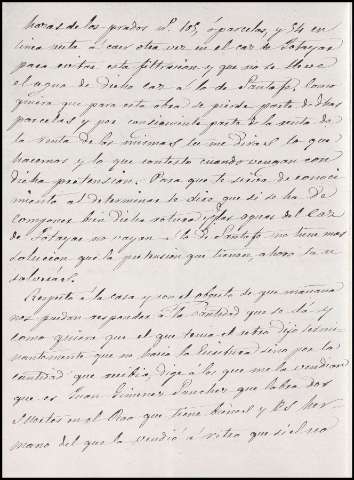 horas de los prados nº. 105, ó parcelas, y 54 en
linea recta á caer otra vez en el caz de Totayar
para evitar esta filtrasion y que no se lleve
el agua de dicho caz a la de Santafe. Como
quiera que para esta obra se pierde parte de dhas
parcelas y por consiguiente parte de la renta de
la renta de las mismas tu me diras lo que
hacemos y lo que contesto cuando vengan con
dicha pretension. Para que te sirva de conoci
miento al determinar te digo que si se ha de
componer bien dicha rotura y las aguas del caz
de Totayar no vayan a la de Santafe no tiene mas
solucion que la pretension que tienen, ahora tu re
solveras.
Respecto á la casa y con el objeto de que mañana
nos puedan responder a la cantidad que se dá y
como quiera que el que tenia el retro dijo termi
nantemente que no hacia la Escritura sino por la
cantidad que recibia, dige á los que me la vendian
que es Juan Gimenez Sanchez que labra dos
en el Rao que tiene bienes y es her
mano del que la vendió á retro que si el no